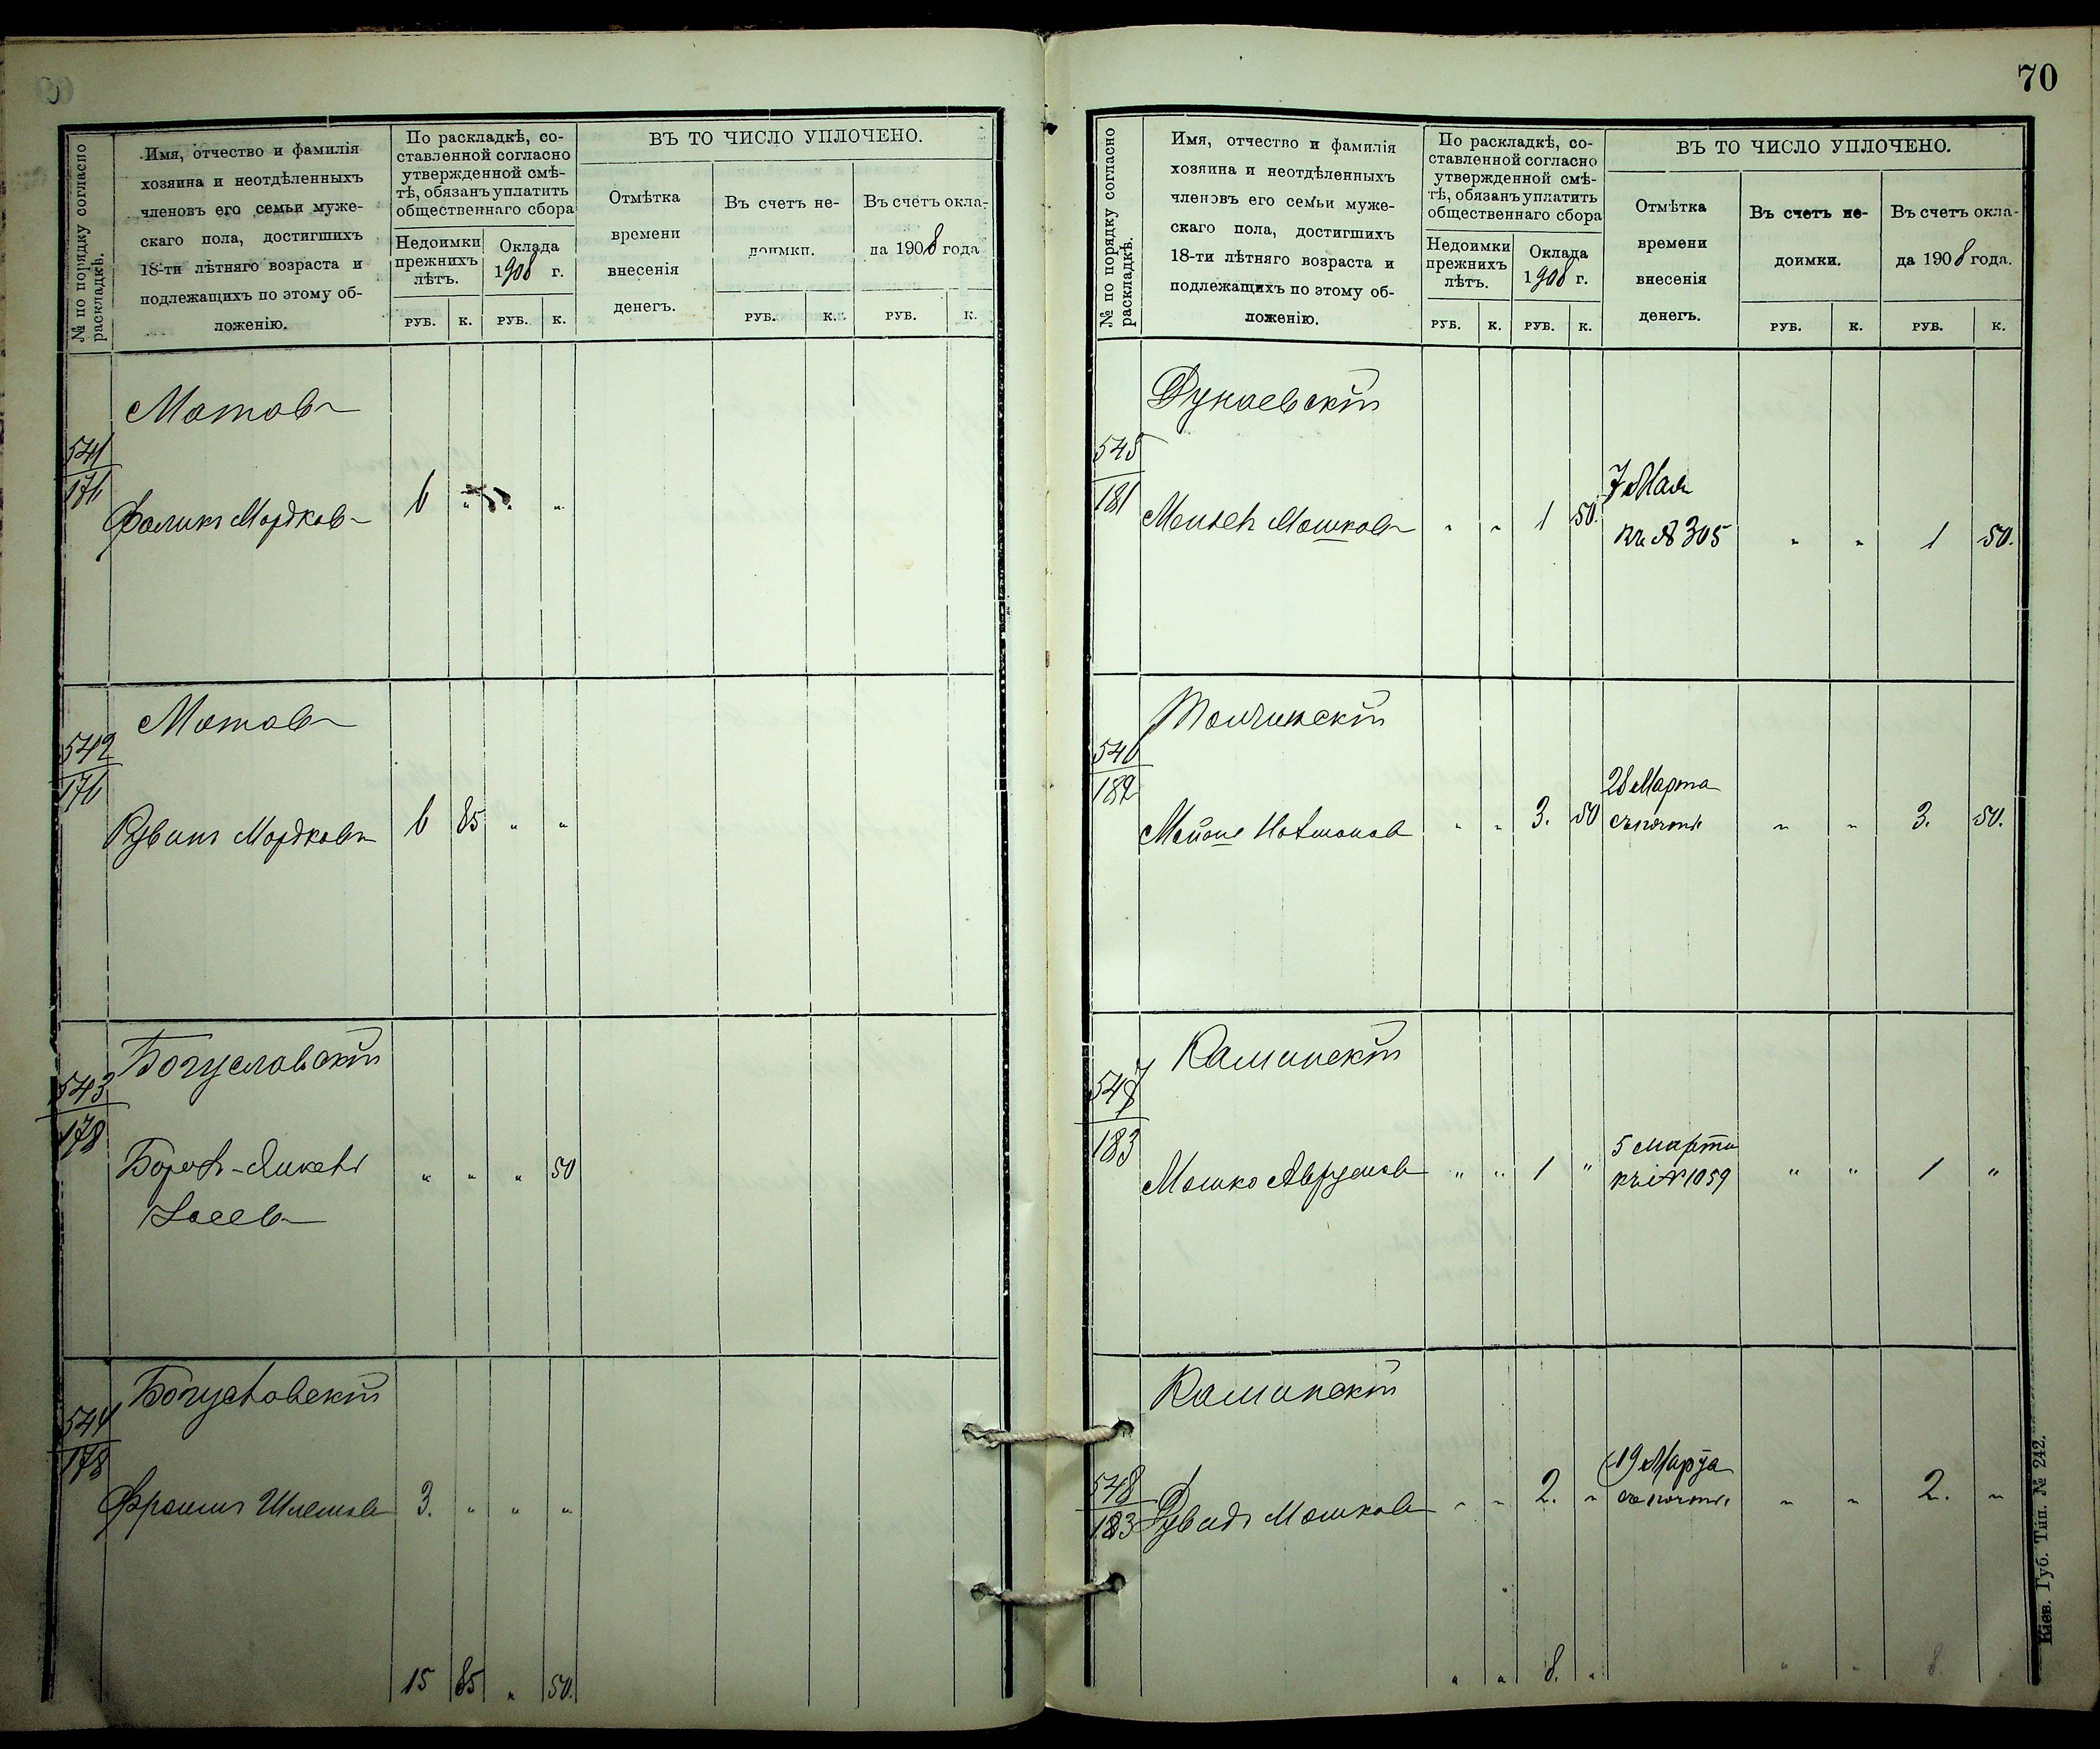 70
№ по порядку согласно раскладкѣ.
Имя, отчество и фамилія
хозяина и неотдѣленныхъ
членовъ его семьи муже-
скаго пола, достигшихъ
18-ти лѣтняго возраста и
подлежащихъ по этому об-
ложенію.
По раскладкѣ, со-
ставленной согласно
утвержденной смѣ-
тѣ, обязанъ уплатить
общественнаго сбора
Недоимки
прежнихъ
лѣтъ.
Оклада
1908 г.
ВЪ ТО ЧИСЛО УПЛОЧЕНО.
Отмѣтка
времени
внесенія
денегъ.
Въ счетъ не-
доимки.
Въ счетъ окла-
да 1908 года
РУБ. К. РУБ. К. РУБ. К. РУБ. К.
Матовъ
541
176
Фаликъ Мордковъ 6 " " "
Матовъ
542
176
Рувинъ Мордковъ 6 85 " "
Богуславскій
543
178
Борохъ-Янкель " " " 50
Іосевъ
Богуславскій
544
178
Фроимъ Шлемовъ 3. " " "
15 85 " 50.
№ по порядку согласно раскладкѣ.
Имя, отчество и фамилія
хозяина и неотдѣленныхъ
членовъ его семьи муже-
скаго пола, достигшихъ
18-ти лѣтняго возраста и
подлежащихъ по этому об-
ложенію.
По раскладкѣ, со-
ставленной согласно
утвержденной смѣ-
тѣ, обязанъ уплатить
общественнаго сбора
Недоимки
прежнихъ
лѣтъ.
Оклада
1908 г.
ВЪ ТО ЧИСЛО УПЛОЧЕНО.
Отмѣтка
времени
внесенія
денегъ.
Въ счетъ не-
доимки.
Въ счетъ окла-
да 1908 года.
РУБ. К. РУБ. К. РУБ. К. РУБ. К.
Дукаевскій
545
181
7 Мая
Мошковъ " " 1 50. кв № 305 " " 1 50.
546
182
28 Марта
" " 3. 50 " " 3. 50.
Каминскій
547
183
5 марта
Мошко Аврумовъ " " 1 " кв № 1059 " " 1 "
Каминскій
548
183
19 Марта
Мошковъ " " 2. " " " 2. "
" " 8. " " " 8.
Кіев. Губ. Тип. № 242.